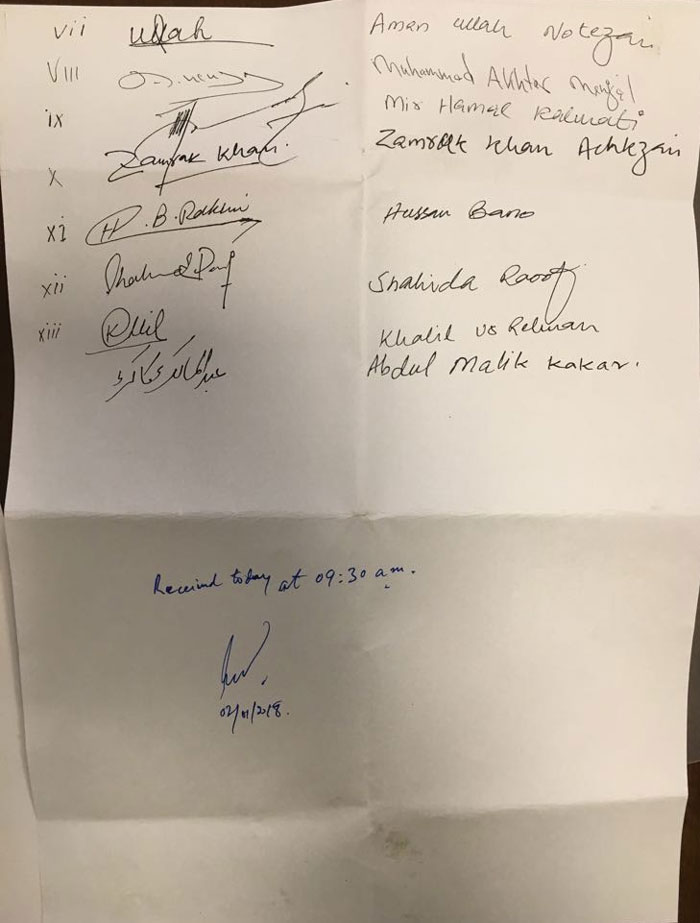 vii ullah Aman ullah Notezai
viii Muhammad Akhtar Mengal
ix Mir Hamal Kalmati
x Zamrak Khan. Zamrak Khan Achkzai
xi H.B. Husan Bano
xii Shahida Raoof
xiii Khalil Ur Rehman
عبدالمالک کاکڑ Abdul Malik Kakar.
Received today at 09:30 am.
02/01/2018.